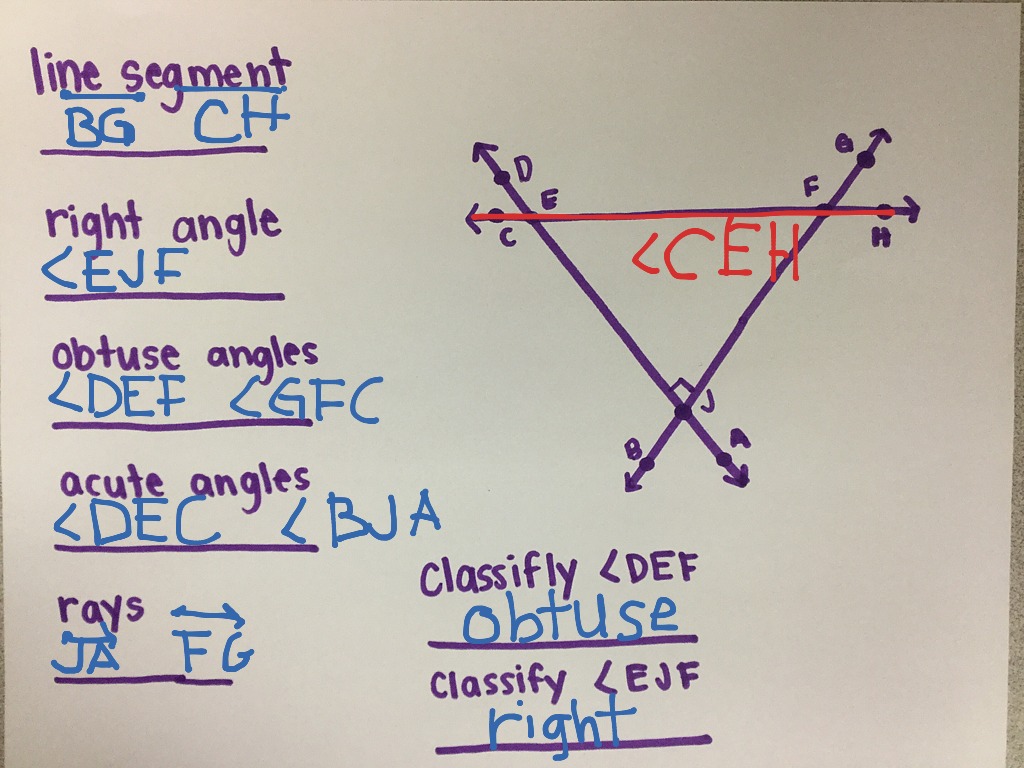 line segment
BG CH
right angle
<EJF
obtuse angles
<DEF <GFC
acute angles
<DEC <BJA
rays
JA FG
D
E
F
G
C
H
<CEH
J
B
A
Classifly <DEF
obtuse
Classify <EJF
right